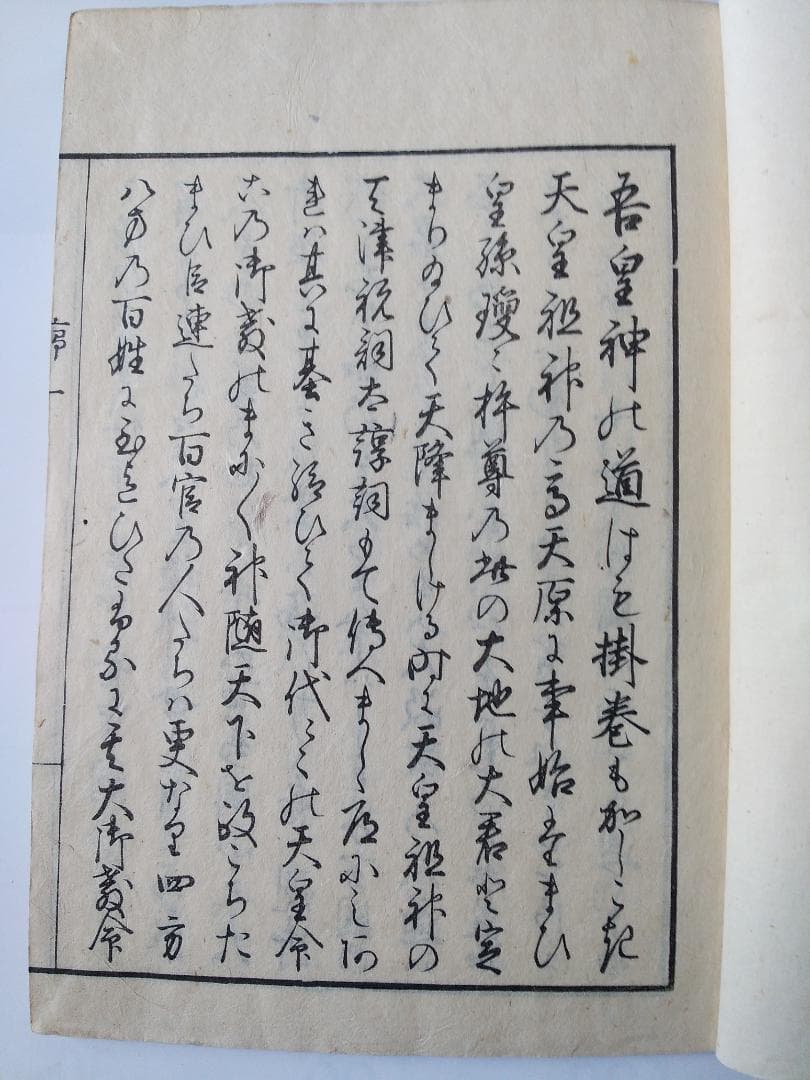 吾皇神の道はも掛巻も加しこき
天皇祖神乃高天原に事始たまひ
皇孫瓊々杵尊乃此の大地の大君と定
まり給ひて天降ましける時に天皇祖神の
天津祝詞太諄詞もて伝へまし
其に基き給ひて御代々々の天皇命
乃御教のまに〱神随天下を政こちた
まひ臣連たち百官乃人たちハ更なり四方
八方乃百姓に大御教命
序一